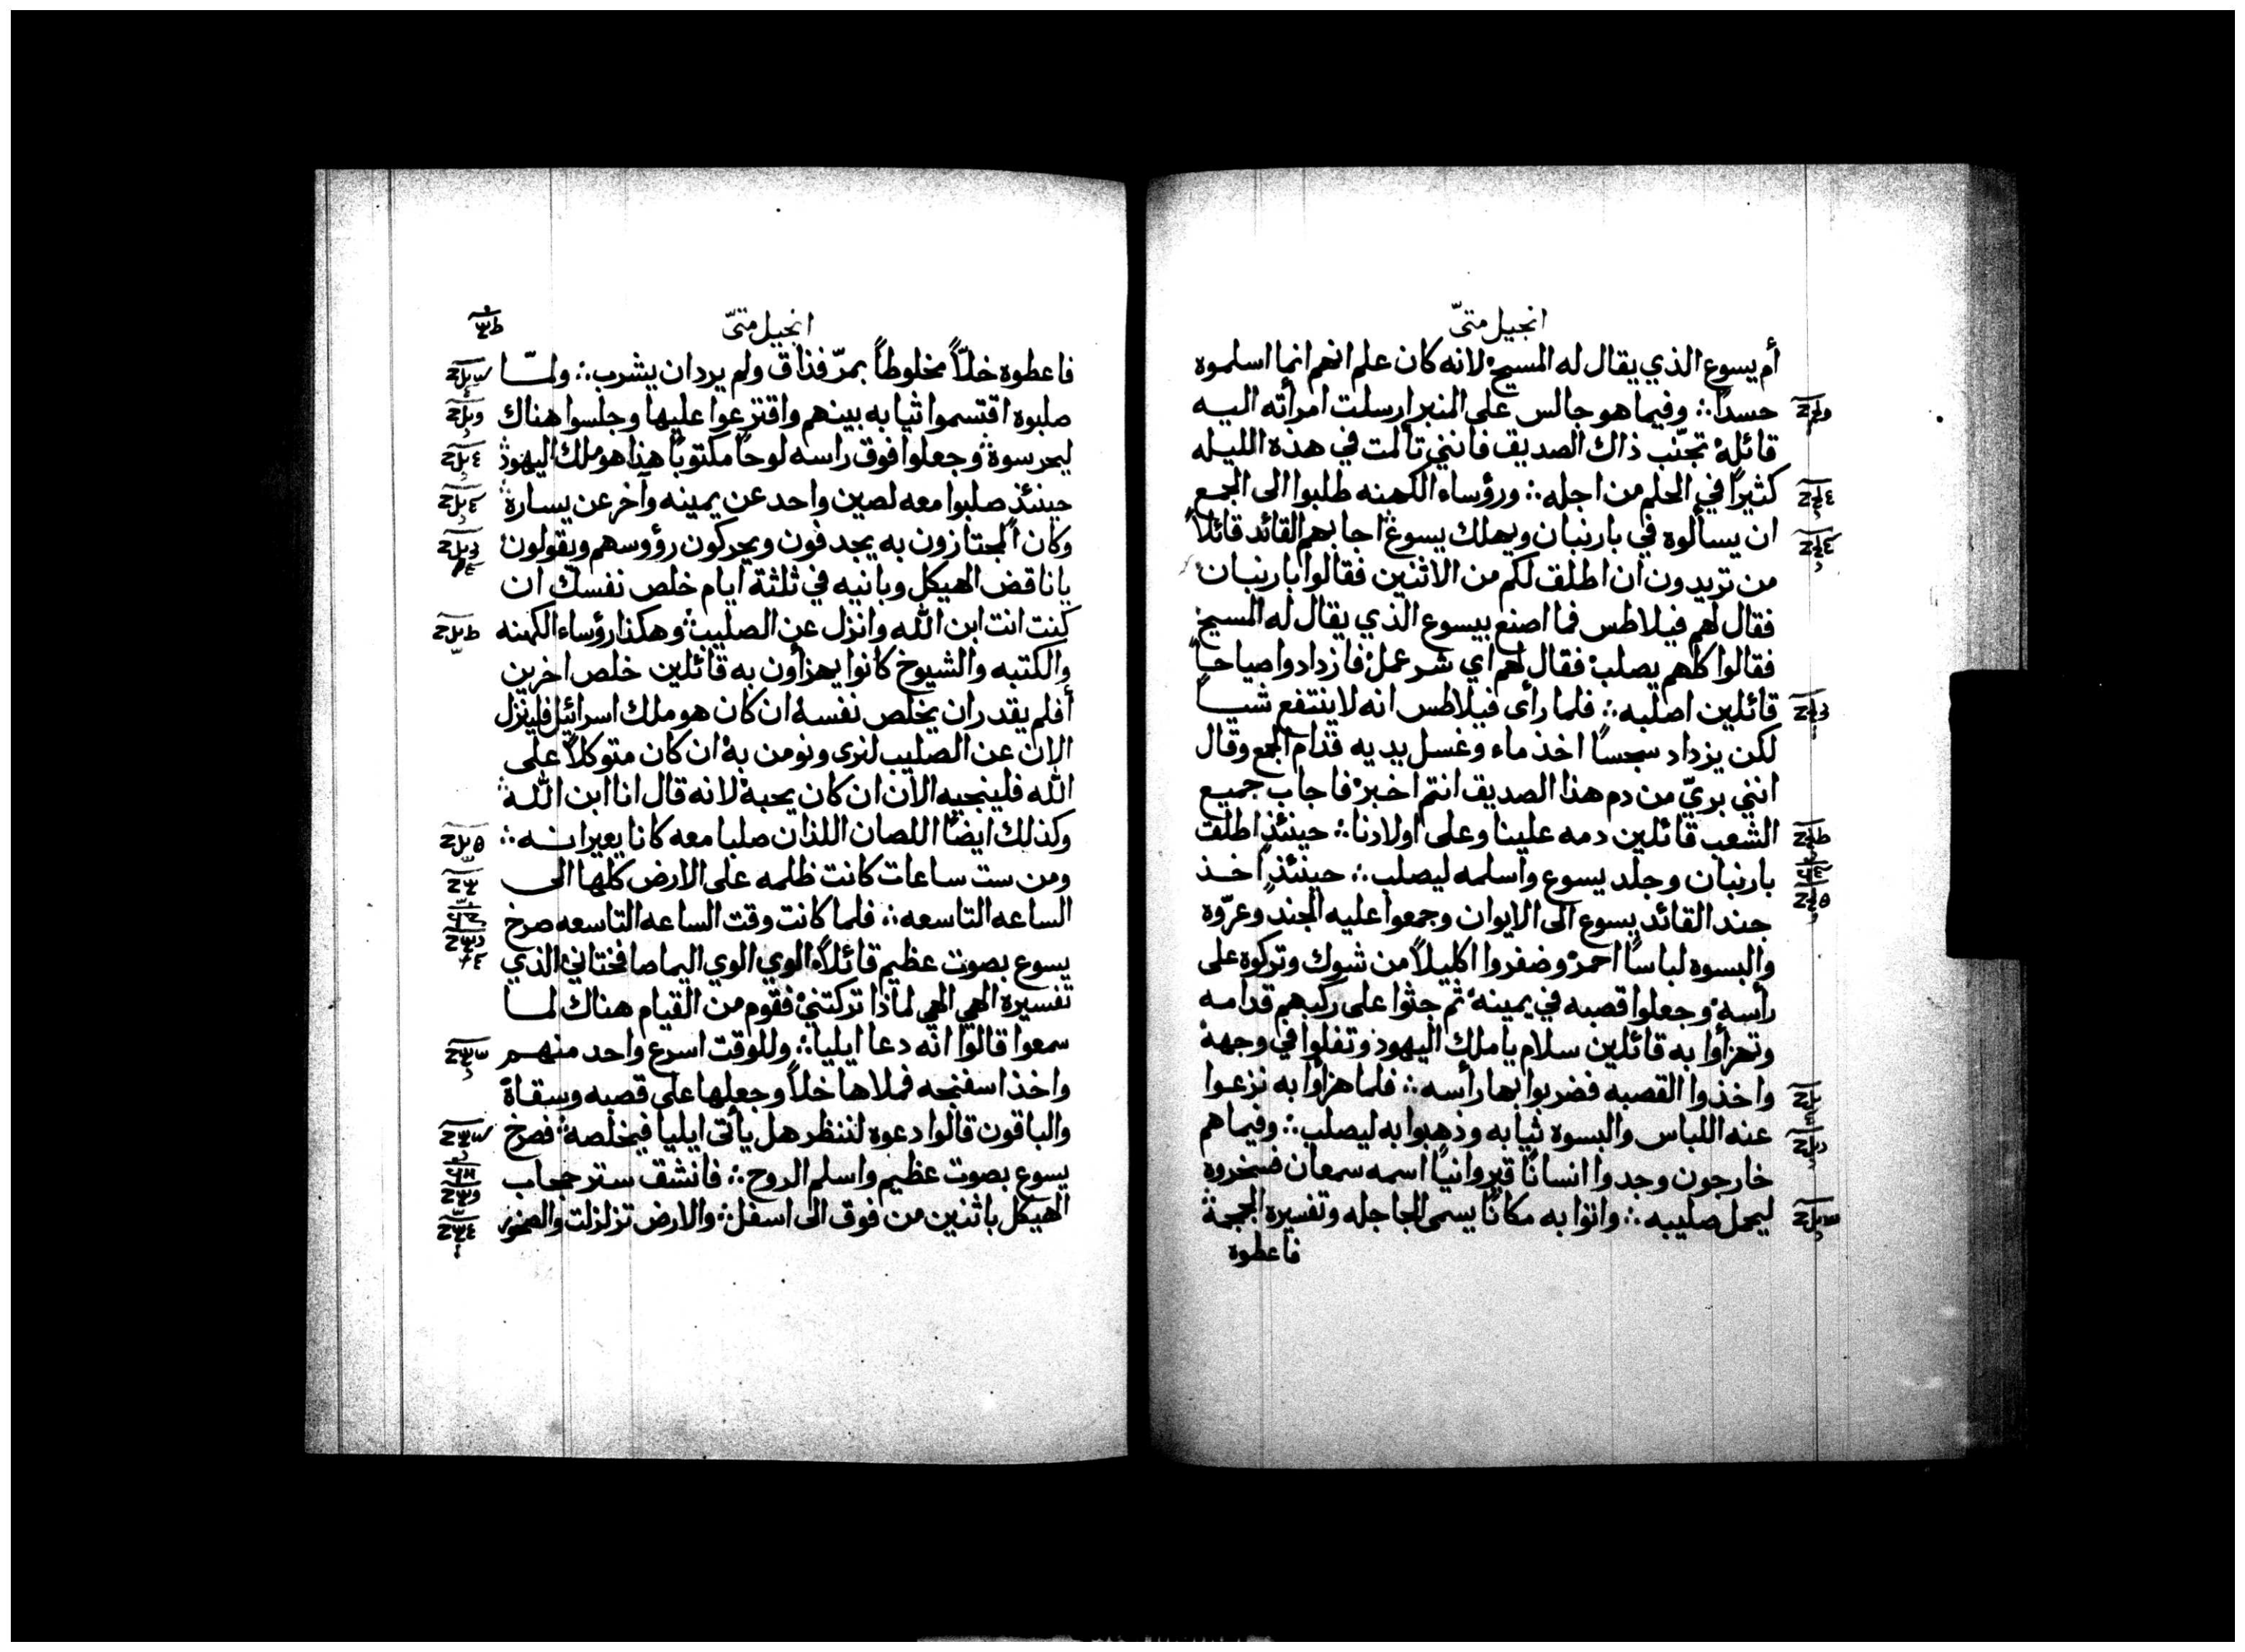 انجيل متىّ
أم يسوع الذي يقال له المسيح لانه كان علم انهم انما اسلموه
حسداً ∴ وفيما هو جالس على المنبر ارسلت امرأته اليه
قائلة تجنّب ذاك الصديق فانني تألمت في هذه الليله
كثيراً في الحلم من اجله ∴ ورؤساء الكهنه طلبوا الى الجمع
ان يسألوه في بارنبان ويهلك يسوع اجابهم القائد قائلاً
من تريدون ان اطلق لكم من الاثنين فقالوا بارنبان
فقال لهم فيلاطس فما اصنع بيسوع الذي يقال له المسيح
فقالوا كلهم يصلب فقال لهم اي شر عمل فازدادوا صياحاً
قائلين اصلبه ∴ فلما رأى فيلاطس انه لا ينتفع شياً
لكن يزداد سجساً اخذ ماء وغسل يديه قدام الجمع وقال
انني بريّ من دم هذا الصديق انتم اخبر فاجاب جميع
الشعب قائلين دمه علينا وعلى اولادنا ∴ حينئذٍ اطلق
بارنبان وجلد يسوع واسلمه ليصلب ∴ حينئذٍ اخذ
جند القائد يسوع الى الايوان وجمعوا عليه الجند وعرّوه
والبسوه لباساً احمر وضفروا اكليلاً من شوك وتركوه على
رأسه وجعلوا قصبه في يمينه ثم جثوا على ركبهم قدامه
وتهزأوا به قائلين سلام يا ملك اليهود وتفلوا في وجهه
واخذوا القصبه فضربوا بها رأسه ∴ فلما هزأوا به نزعوا
عنه اللباس والبسوه ثيابه وذهبوا به ليصلب ∴ وفيما هم
خارجون وجدوا انساناً قيروانياً اسمه سمعان فسخروه
ليحمل صليبه ∴ واتوا به مكاناً يسمى الجاجله وتفسيره الجمجمة
فاعطوه
انجيل متىّ
فاعطوه خلّاً مخلوطاً بمرّ فذاق ولم يرد ان يشرب ∴ ولمّا
صلبوه اقتسموا ثيابه بينهم واقترعوا عليها وجلسوا هناك
ليحرسوه وجعلوا فوق راسه لوحاً مكتوباً هذا هو ملك اليهود
حينئذٍ صلبوا معه لصين واحد عن يمينه وآخر عن يساره
وكان المجتازون به يجدفون ويحركون رؤوسهم ويقولون
يا ناقض الهيكل وبانيه في ثلثة ايام خلص نفسك ان
كنت انت ابن الله وانزل عن الصليب وهكذا رؤساء الكهنه
والكتبه والشيوخ كانوا يهزأون به قائلين خلص اخرين
أفلم يقدر ان يخلص نفسه ان كان هو ملك اسرائيل فلينزل
الان عن الصليب لنرى ونومن به ان كان متوكلاً على
الله فلينجيه الان ان كان يحبه لانه قال انا ابن الله
وكذلك ايضاً اللصان اللذان صلبا معه كانا يعيرانه ∴
ومن ست ساعات كانت ظلمه على الارض كلها الى
الساعه التاسعه ∴ فلما كانت وقت الساعه التاسعه صرخ
يسوع بصوت عظيم قائلاً الوي الوي اليما صافختاني الذي
تفسيره الهي الهي لماذا تركتني فقوم من القيام هناك لما
سمعوا قالوا انه دعا ايليا ∴ وللوقت اسرع واحد منهم
واخذ اسفنجه فملاها خلاً وجعلها على قصبه وسقاه
والباقون قالوا دعوه لننظر هل يأتى ايليا فيخلصه فصرخ
يسوع بصوت عظيم واسلم الروح ∴ فانشق ستر حجاب
الهيكل باثنين من فوق الى اسفل والارض تزلزلت والصخور